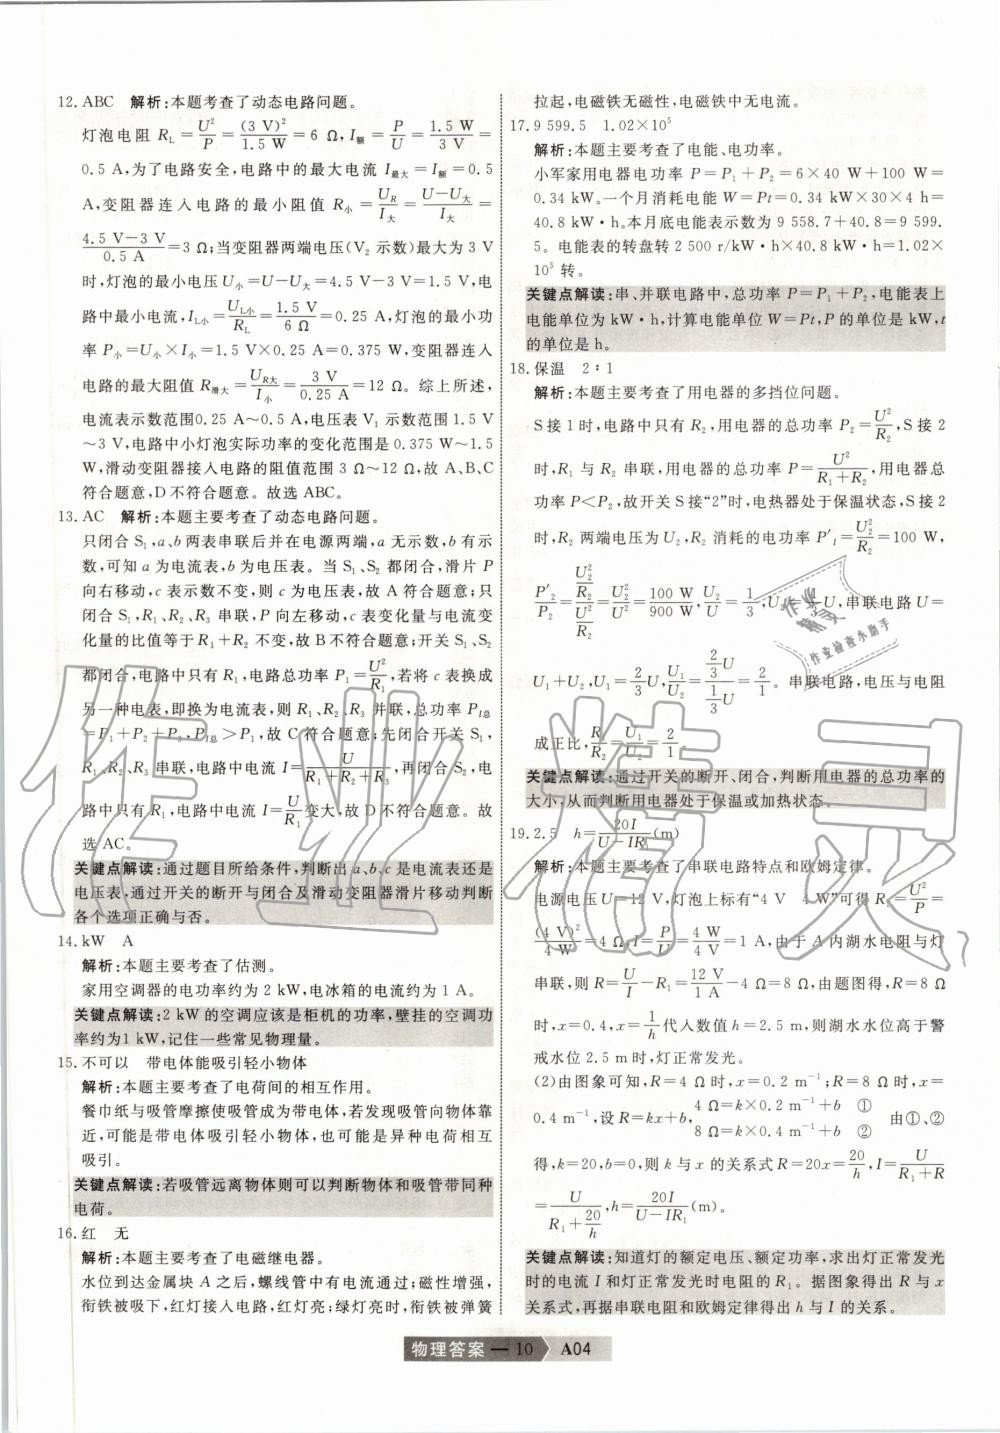 12. ABC　解析:本题考查了动态电路问题。
灯泡电阻 R_L = U²/P = (3 V)²/1.5 W = 6 Ω, I_额 = P/U = 1.5 W/3 V =
0.5 A,为了电路安全,电路中的最大电流 I_最大 = I_额 = 0.5
A,变阻器连入电路的最小阻值 R_小 = U_R/I_大 = (U−U_大)/I_大 =
(4.5 V−3 V)/0.5 A = 3 Ω;当变阻器两端电压(V₂ 示数)最大为 3 V
时,灯泡的最小电压 U_小 = U−U_大 = 4.5 V−3 V = 1.5 V,电
路中最小电流, I_L小 = U_L小/R_L = 1.5 V/6 Ω = 0.25 A,灯泡的最小功
率 P_小 = U_小×I_小 = 1.5 V×0.25 A = 0.375 W,变阻器连入
电路的最大阻值 R_滑大 = U_R大/I_小 = 3 V/0.25 A = 12 Ω。综上所述,
电流表示数范围0.25 A～0.5 A,电压表 V₁ 示数范围 1.5 V
～3 V,电路中小灯泡实际功率的变化范围是 0.375 W～1.5
W,滑动变阻器接入电路的阻值范围 3 Ω～12 Ω,故 A、B、C
符合题意,D 不符合题意。故选 ABC。
13. AC　解析:本题主要考查了动态电路问题。
只闭合 S₁,a、b 两表串联后并在电源两端,a 无示数,b 有示
数,可知 a 为电流表,b 为电压表。当 S₁、S₂ 都闭合,滑片 P
向右移动,c 表示数不变,则 c 为电压表,故 A 符合题意;只
闭合 S₁,R₁、R₂、R₃ 串联,P 向左移动,c 表变化量与电流变
化量的比值等于 R₁+R₂ 不变,故 B 不符合题意;开关 S₁、S₂
都闭合,电路中只有 R₁,电路总功率 P₁ = U²/R₁,若将 c 表换成
另一种电表,即换为电流表,则 R₁、R₂、R₃ 并联,总功率 P_I总
= P₁+P₂+P₃,P_I总 > P₁,故 C 符合题意;先闭合开关 S₁,
R₁、R₂、R₃ 串联,电路中电流 I = U/(R₁+R₂+R₃),再闭合 S₂,电
路中只有 R₁,电路中电流 I = U/R₁ 变大,故 D 不符合题意。故
选 AC。
关键点解读:通过题目所给条件,判断出 a、b、c 是电流表还是
电压表,通过开关的断开与闭合及滑动变阻器滑片移动判断
各个选项正确与否。
14. kW　A
解析:本题主要考查了估测。
家用空调器的电功率约为 2 kW,电冰箱的电流约为 1 A。
关键点解读:2 kW 的空调应该是柜机的功率,壁挂的空调功
率约为1 kW,记住一些常见物理量。
15. 不可以　带电体能吸引轻小物体
解析:本题主要考查了电荷间的相互作用。
餐巾纸与吸管摩擦使吸管成为带电体,若发现吸管向物体靠
近,可能是带电体吸引轻小物体,也可能是异种电荷相互
吸引。
关键点解读:若吸管远离物体则可以判断物体和吸管带同种
电荷。
16. 红　无
解析:本题主要考查了电磁继电器。
水位到达金属块 A 之后,螺线管中有电流通过;磁性增强,
衔铁被吸下,红灯接入电路,红灯亮;绿灯亮时,衔铁被弹簧
拉起,电磁铁无磁性,电磁铁中无电流。
17. 9 599.5　1.02×10⁵
解析:本题主要考查了电能、电功率。
小军家用电器电功率 P = P₁+P₂ = 6×40 W+100 W=
0.34 kW。一个月消耗电能 W=Pt=0.34 kW×30×4 h=
40.8 kW·h。本月底电能表示数为 9 558.7+40.8=9 599.
5。电能表的转盘转 2 500 r/kW·h×40.8 kW·h=1.02×
10⁵ 转。
关键点解读:串、并联电路中,总功率 P=P₁+P₂,电能表上
电能单位为 kW·h,计算电能单位 W=Pt,P 的单位是 kW,t
的单位是 h。
18. 保温　2∶1
解析:本题主要考查了用电器的多挡位问题。
S 接 1 时,电路中只有 R₂,用电器的总功率 P₂ = U²/R₂,S 接 2
时,R₁ 与 R₂ 串联,用电器的总功率 P = U²/(R₁+R₂),用电器总
功率 P<P₂,故开关 S 接“2”时,电热器处于保温状态,S 接 2
时,R₂ 两端电压为 U₂,R₂ 消耗的电功率 P′₂ = U₂²/R₂ = 100 W,
P′₂/P₂ = (U₂²/R₂)/(U²/R₂) = U₂²/U² = 100 W/900 W, U₂/U = 1/3, U₂ = 1/3 U,串联电路 U=
U₁+U₂, U₁ = 2/3 U, U₁/U₂ = (2/3 U)/(1/3 U) = 2/1。串联电路,电压与电阻
成正比, R₁/R₂ = U₁/U₂ = 2/1。
关键点解读:通过开关的断开、闭合,判断用电器的总功率的
大小,从而判断用电器处于保温或加热状态。
19. 2.5　h = 20I/(U−IR₁) (m)
解析:本题主要考查了串联电路特点和欧姆定律。
电源电压 U=12 V,灯泡上标有“4 V　4 W”可得 R₁ = U²/P =
(4 V)²/4 W = 4 Ω, I = P/U = 4 W/4 V = 1 A,由于 A 内湖水电阻与灯
串联,则 R = U/I − R₁ = 12 V/1 A − 4 Ω = 8 Ω。由图可知,R=8 Ω
时,x=0.4,x = 1/h 代入数值 h=2.5 m,则湖水水位高于警
戒水位 2.5 m 时,灯正常发光。
(2)由图象可知,R=4 Ω 时,x=0.2 m⁻¹;R=8 Ω 时,x=
0.4 m⁻¹,设 R=kx+b, 4 Ω=k×0.2 m⁻¹+b　① 8 Ω=k×0.4 m⁻¹+b　② 由①、②
得,k=20,b=0,则 k 与 x 的关系式 R=20x = 20/h, I = U/(R₁+R)
= U/(R₁+20/h), h = 20I/(U−IR₁) (m)。
关键点解读:知道灯的额定电压、额定功率,求出灯正常发光
时的电流 I 和灯正常发光时电阻的 R₁。据图象得出 R 与 x
关系式,再据串联电阻和欧姆定律得出 h 与 I 的关系。
物理答案 — 10　A04
作业精灵
作业精灵
作业检查小助手